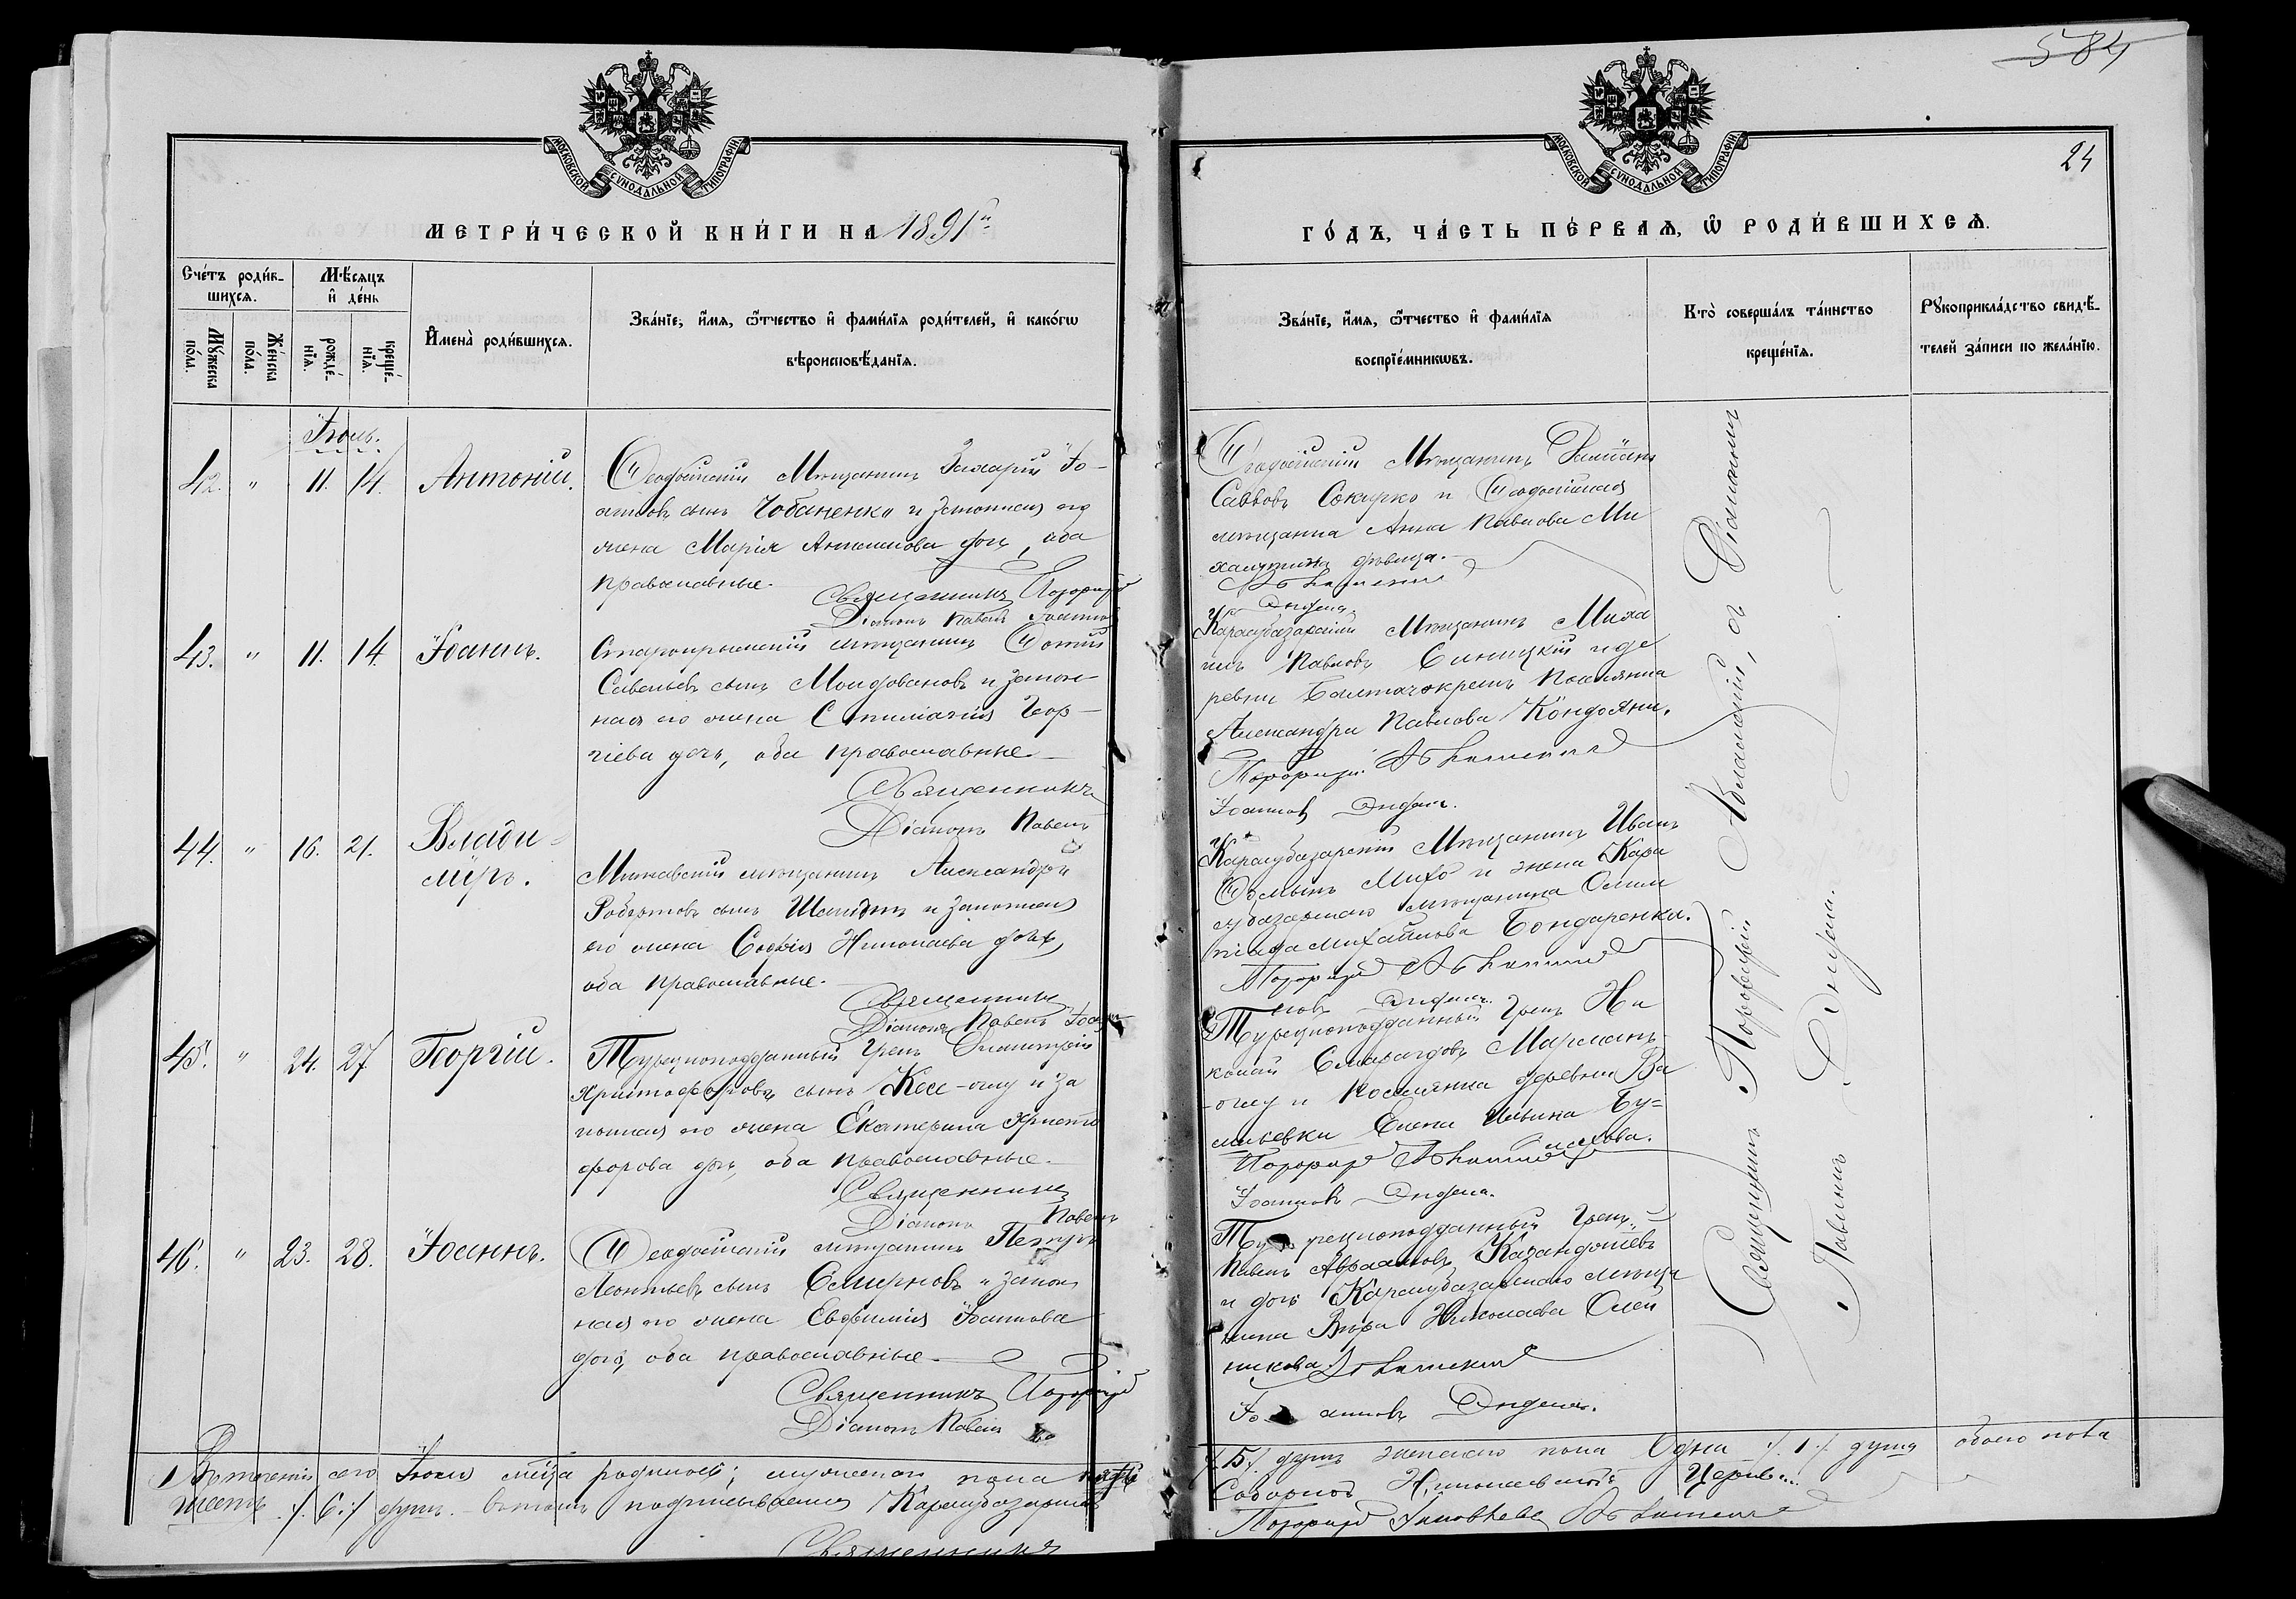 584
24
МОСКОВСКОЙ СѴНОДАЛЬНОЙ ТИПОГРАФІИ
МОСКОВСКОЙ СѴНОДАЛЬНОЙ ТИПОГРАФІИ
МЕТРИ́ЧЕСКОЙ КНИ́ГИ НА 1891й
ГО́ДЪ, ЧА́СТЬ ПЕ́РВАѦ, Ѡ҆ РОДИ́ВШИХСѦ.
Сче́тъ роди́в-
шихсѧ.
Мѣ́сѧцъ
и҆ де́нь
Мꙋ́жеска по́ла.
Же́нска по́ла.
рожде́-нїѧ.
креще́-нїѧ.
И҆мена̀ роди́вшихсѧ.
Зва́нїе, и҆́мѧ, ѻ҆́тчество и҆ фами́лїѧ роди́телей, и҆ како́гѡ
вѣроисповѣ́данїѧ.
Зва́нїе, и҆́мѧ, ѻ҆́тчество и҆ фами́лїѧ
воспрїе́мникѡвъ.
Кто̀ соверша́лъ та́инство
креще́нїѧ.
Рꙋкоприкла́дство свидѣ́-
телей за́писи по жела́нїю.
Іюнь.
42. " 11. 14. Антоній.
Ѳеодосійскій Мѣщанинъ Захарій Іо-
анновъ сынъ Чобаненко и законная его
жена Марія Антонова дочь, оба
православные.
Священникъ Порфирій
Діаконъ Павелъ Іоанновъ
Ѳеодосійскій Мѣщанинъ
Савовъ Сокирко и Ѳеодосійская
мѣщанка Анна Павлова Ми
дѣвица.
Эндека.
43. " 11. 14. Іоаннъ.
Старокрымскій мѣщанинъ Фотій
Савельевъ сынъ Молдовановъ и закон-
ная его жена Стилиания Геор-
гіева дочь, оба православные
Священникъ
Діаконъ Павелъ
Карасубазарскій Мѣщанинъ Миха
илъ Павловъ Синицкій и де
ревни поселянка
Александра Павлова Кондояни.
Порфирій
Іоанновъ Эндека.
44. " 16. 21. Влади-
міръ.
Митавскій мѣщанинъ Александръ
Робертовъ сынъ Шмидтъ и законная
его жена Софія Николаева дочь,
оба православные.
Священникъ
Діаконъ Павелъ Іоан
Карасубазарскій Мѣщанинъ Иванъ
и жена Кара
субазарскаго мѣщанина Олим
піада Михайлова Бондаренко.
Порфирій
новъ Эндека.
45. " 24. 27. Георгій.
Турецкоподданный Грекъ Димитрій
Христофоровъ сынъ Кес-оглу и за
конная его жена Екатерина Христо
форова дочь, оба православные.
Священникъ
Діаконъ Павелъ
Турецкоподданный Грекъ Ни
колай Смарагдовъ Марман-
-оглу и поселянка деревни Ва
сильевки Елена Ильина Бу-
Порфирій
Іоанновъ Эндека.
46. " 23. 28. Іоаннъ.
Ѳеодосійскій мѣщанинъ Петръ
Леонтьевъ сынъ Смирновъ и закон
ная его жена Евфимія Іоаннова
дочь, оба православные.
Священникъ Порфирій
Діаконъ Павелъ
Турецкоподданный Грекъ
Павелъ Авраамовъ Казанджіевъ
и дочь Карасубазарскаго мѣща
нина Вѣра Николаева Олей
никова.
Іоанновъ Эндека.
Священникъ Порфирій и Діаконъ
Павелъ Эндека.
Въ теченіи сего Іюня мѣсяца родилось; мужескаго пола пять
/.5./ душъ женскаго пола Одна /.1./ душа обоего пола
шесть /.6./ душъ. въ томъ подписываемся Карасубазарской
Соборной Николаевской Церкви.
Священникъ
Порфирій